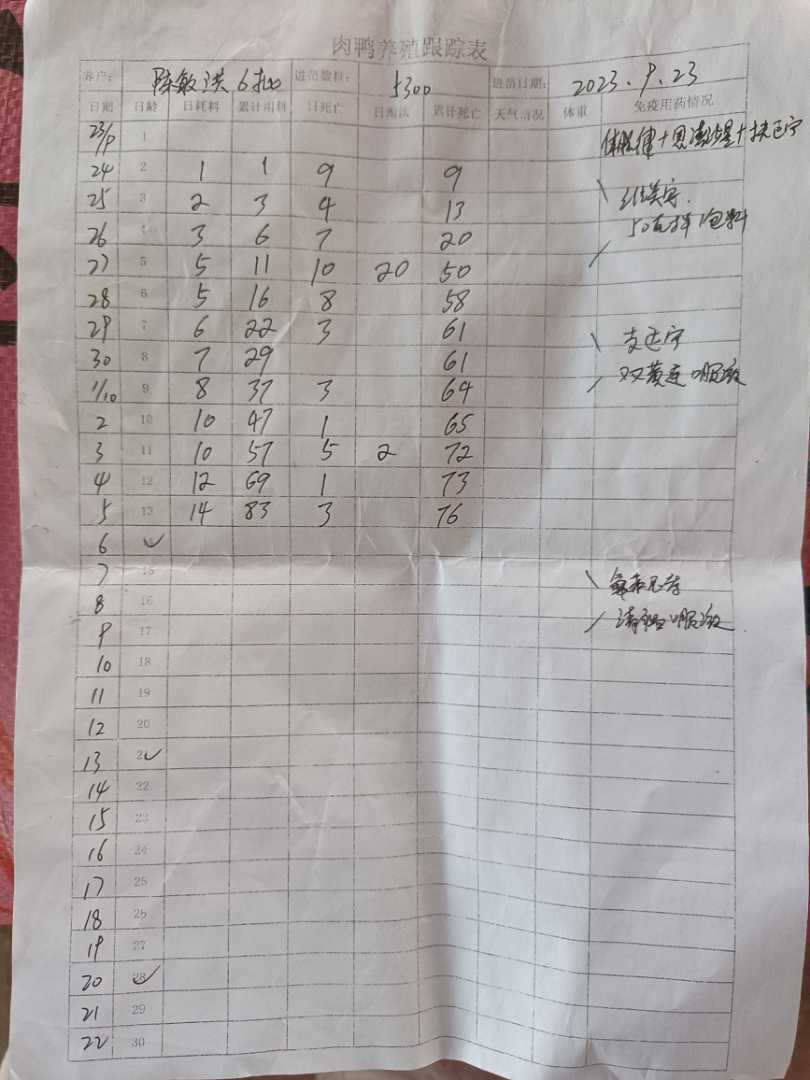 肉鸭养殖跟踪表
养户: 陈敏洪 6批 进苗数目: 5300 进苗日期: 2023.9.23
日期 日龄 日耗料 累计用料 日死亡 日淘汰 累计死亡 天气情况 体重 免疫用药情况
23/9 1 星+
24 2 1 1 9 9
25 3 2 3 4 13
26 4 3 6 7 20 50 1包料
27 5 5 11 10 20 50
28 6 5 16 8 58
29 7 6 22 3 61
30 8 7 29 61
1/10 9 8 37 3 64 双黄连口服液
2 10 10 47 1 65
3 11 10 57 5 2 72
4 12 12 69 1 73
5 13 14 83 3 76
6 ✓
7 15
8 16 口服液
9 17
10 18
11 19
12 20
13 21 ✓
14 22
15 23
16 24
17 25
18 26
19 27
20 28 ✓
21 29
22 30